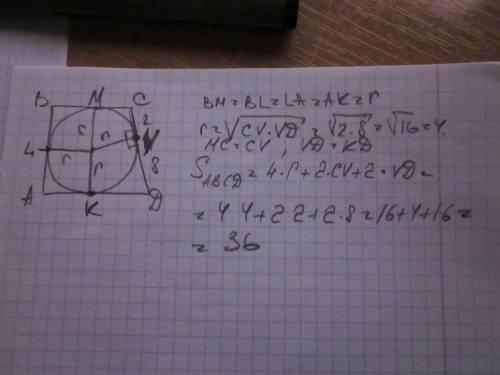 B M C
2
r r
4 r N
r 8
A K D
BM = BL = LA = AK = r
r = √CV·VD = √2·8 = √16 = 4.
MC = CV ; VD = KD
S ABCD = 4·r + 2·CV + 2·VD =
= 4·4 + 2·2 + 2·8 = 16 + 4 + 16 =
= 36